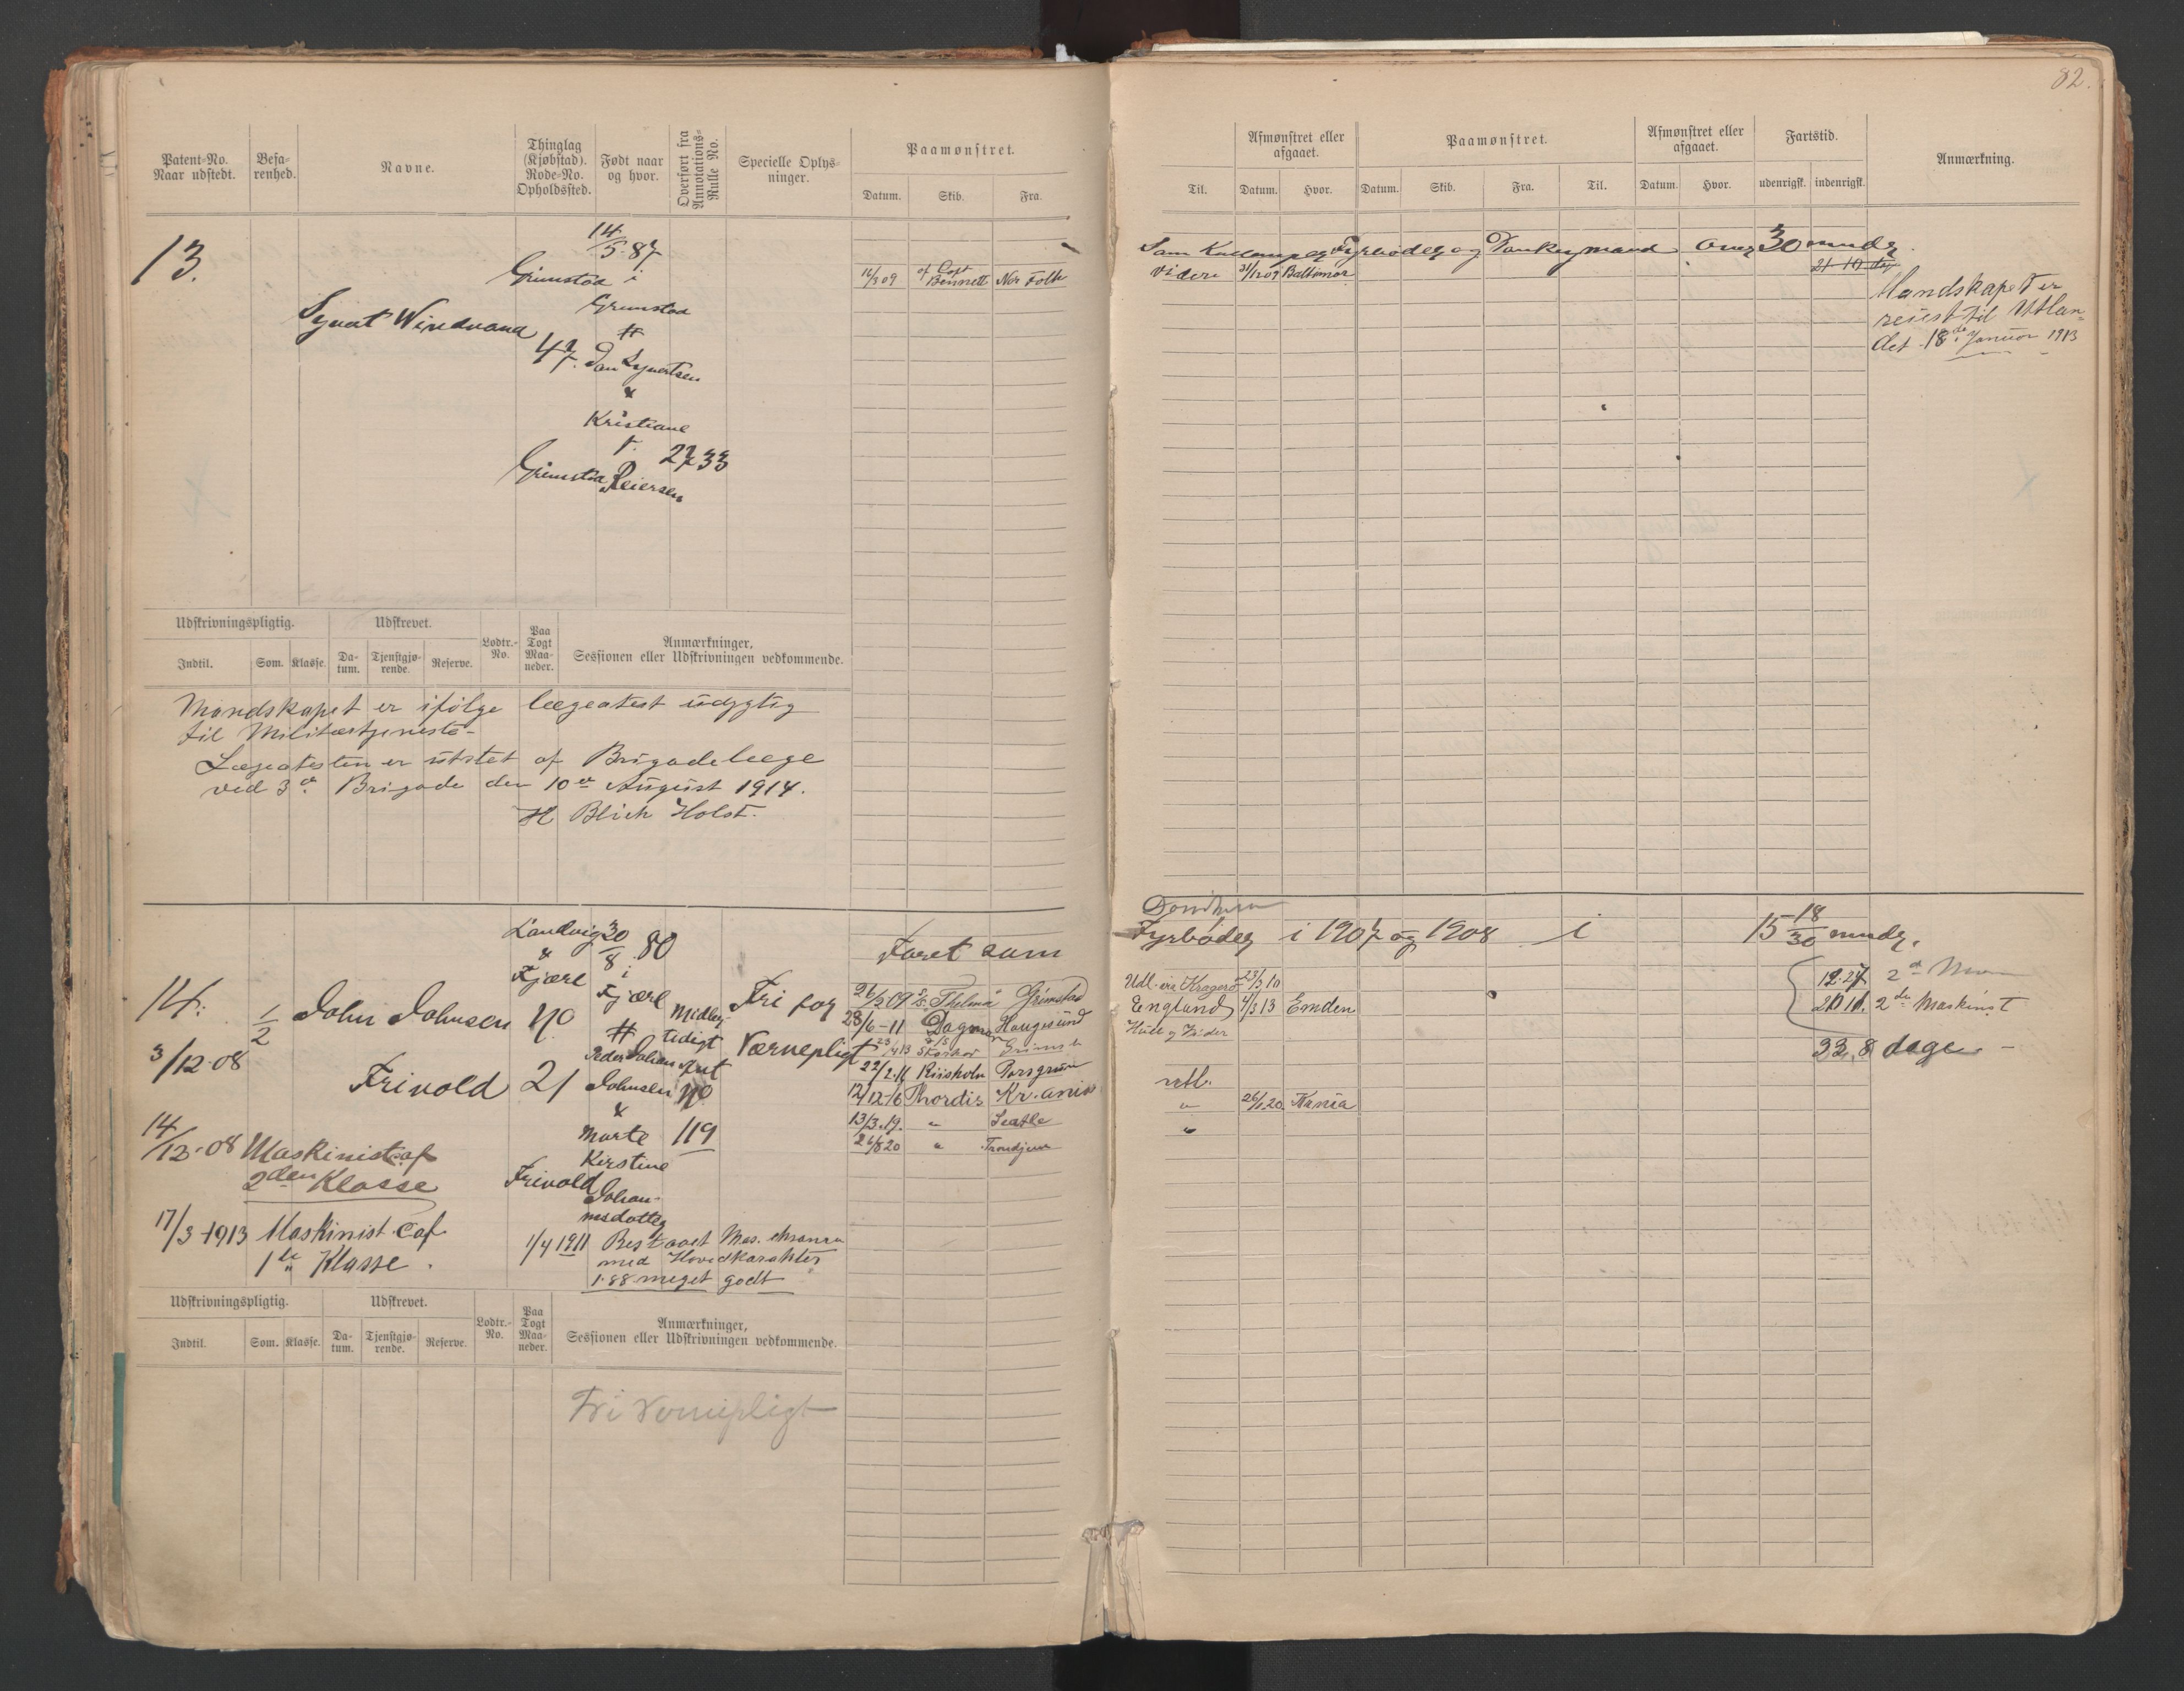 82.
Patent-No. Naar udstedt.
Befarenhed.
Navne.
Thinglag (Kjøbstad). Rode-No. Opholdssted.
Født naar og hvor.
Overført fra Annotations-Rulle No.
Specielle Oplysninger.
Paamønstret.
Datum. Skib. Fra.
Til.
Afmønstret eller afgaaet.
Datum. Hvor.
Paamønstret.
Datum. Skib. Fra. Til.
Afmønstret eller afgaaet.
Datum. Hvor.
Fartstid.
udenrigsk. indenrigsk.
Anmærkning.
13.
Syvert Windvand
Grimstad
47.
Grimstad
14/5 87
i
Grimstad
#
Jan Syvertsen
&
Kristiane
f.
Reiersen
2733
16/3 09 af Capt Bennett Nor Folk
Som Kullemper Fyrbøder og Donkeymand over 30 mndr.
videre 31/12 09 Baltimor 21 10 dg
Mandskapet er
reist til Utlan-
det 18de Januar 1913
Udskrivningspligtig.
Indtil. Som. Klasse.
Udskrevet.
Datum. Tjenstgjørende. Reserve.
Lodtr.-No.
Paa Togt Maaneder.
Anmærkninger,
Sessionen eller Udskrivningen vedkommende.
Mandskapet er ifølge lægeatest udygtig
til Militærtjeneste-
Lægeatesten er utstet af Brigadelæge
ved 3de Brigade den 10de August 1914.
H Blich Holst.
14.
1/2
John Johnsen
Frivold
3/12-08
14/12-08 Maskinist af
2den Klasse
17/3-1913 Maskinist af
1ste Klasse.
Landvig
&
Fjære
No
21
Frivold
30/8 80
i
Fjære
#
Peder Johan
Johnsen
&
Marte
Kirstine
Johan-
nesdatter
Midler-
tidigt
Pat
No
119
Fri for
Værnepligt
1/4 1911 Bestaaet Mas. eksamen
med Hovedkarakter
1.88 meget godt
Faret som
Fyrbøder i 1907 og 1908 i 15 18/30 mndr.
26/3 09 Thelma Grimstad
Udl. via Kragerø 23/3 10
28/6-11 Dagmar Haugesund
England 4/3 13 Emden
Hull
22/2.16 Riisholm Porsgrund
utl.
12/12-16 Thordis Kr.ania
" 26/1 20 Krnia
13/3.19. " Seatle
"
26/8 20 " Trondjem
12.27 2d
20 11. 2den Maskinist
33. 8 dage -
Udskrivningspligtig.
Indtil. Som. Klasse.
Udskrevet.
Datum. Tjenstgjørende. Reserve.
Lodtr.-No.
Paa Togt Maaneder.
Anmærkninger,
Sessionen eller Udskrivningen vedkommende.
Fri Vernepligt